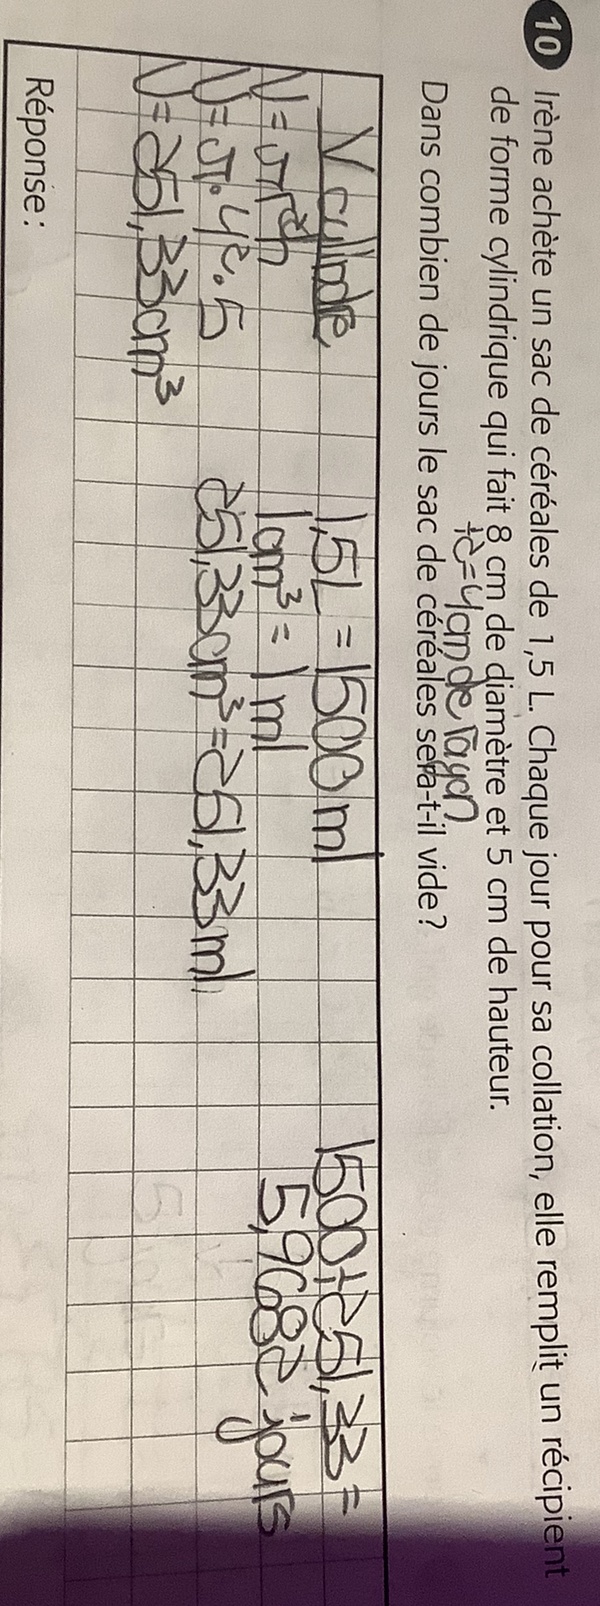 10 Irène achète un sac de céréales de 1,5 L. Chaque jour pour sa collation, elle remplit un récipient
de forme cylindrique qui fait 8 cm de diamètre et 5 cm de hauteur.
÷2=4cm de rayon
Dans combien de jours le sac de céréales sera-t-il vide?
V cylindre
V = πr²h
V = π·4²·5
V = 251,33cm³
1,5L = 1500 ml
1 cm³ = 1 ml
251,33cm³ = 251,33 ml
1500÷251,33 =
5,9682 jours
Réponse :